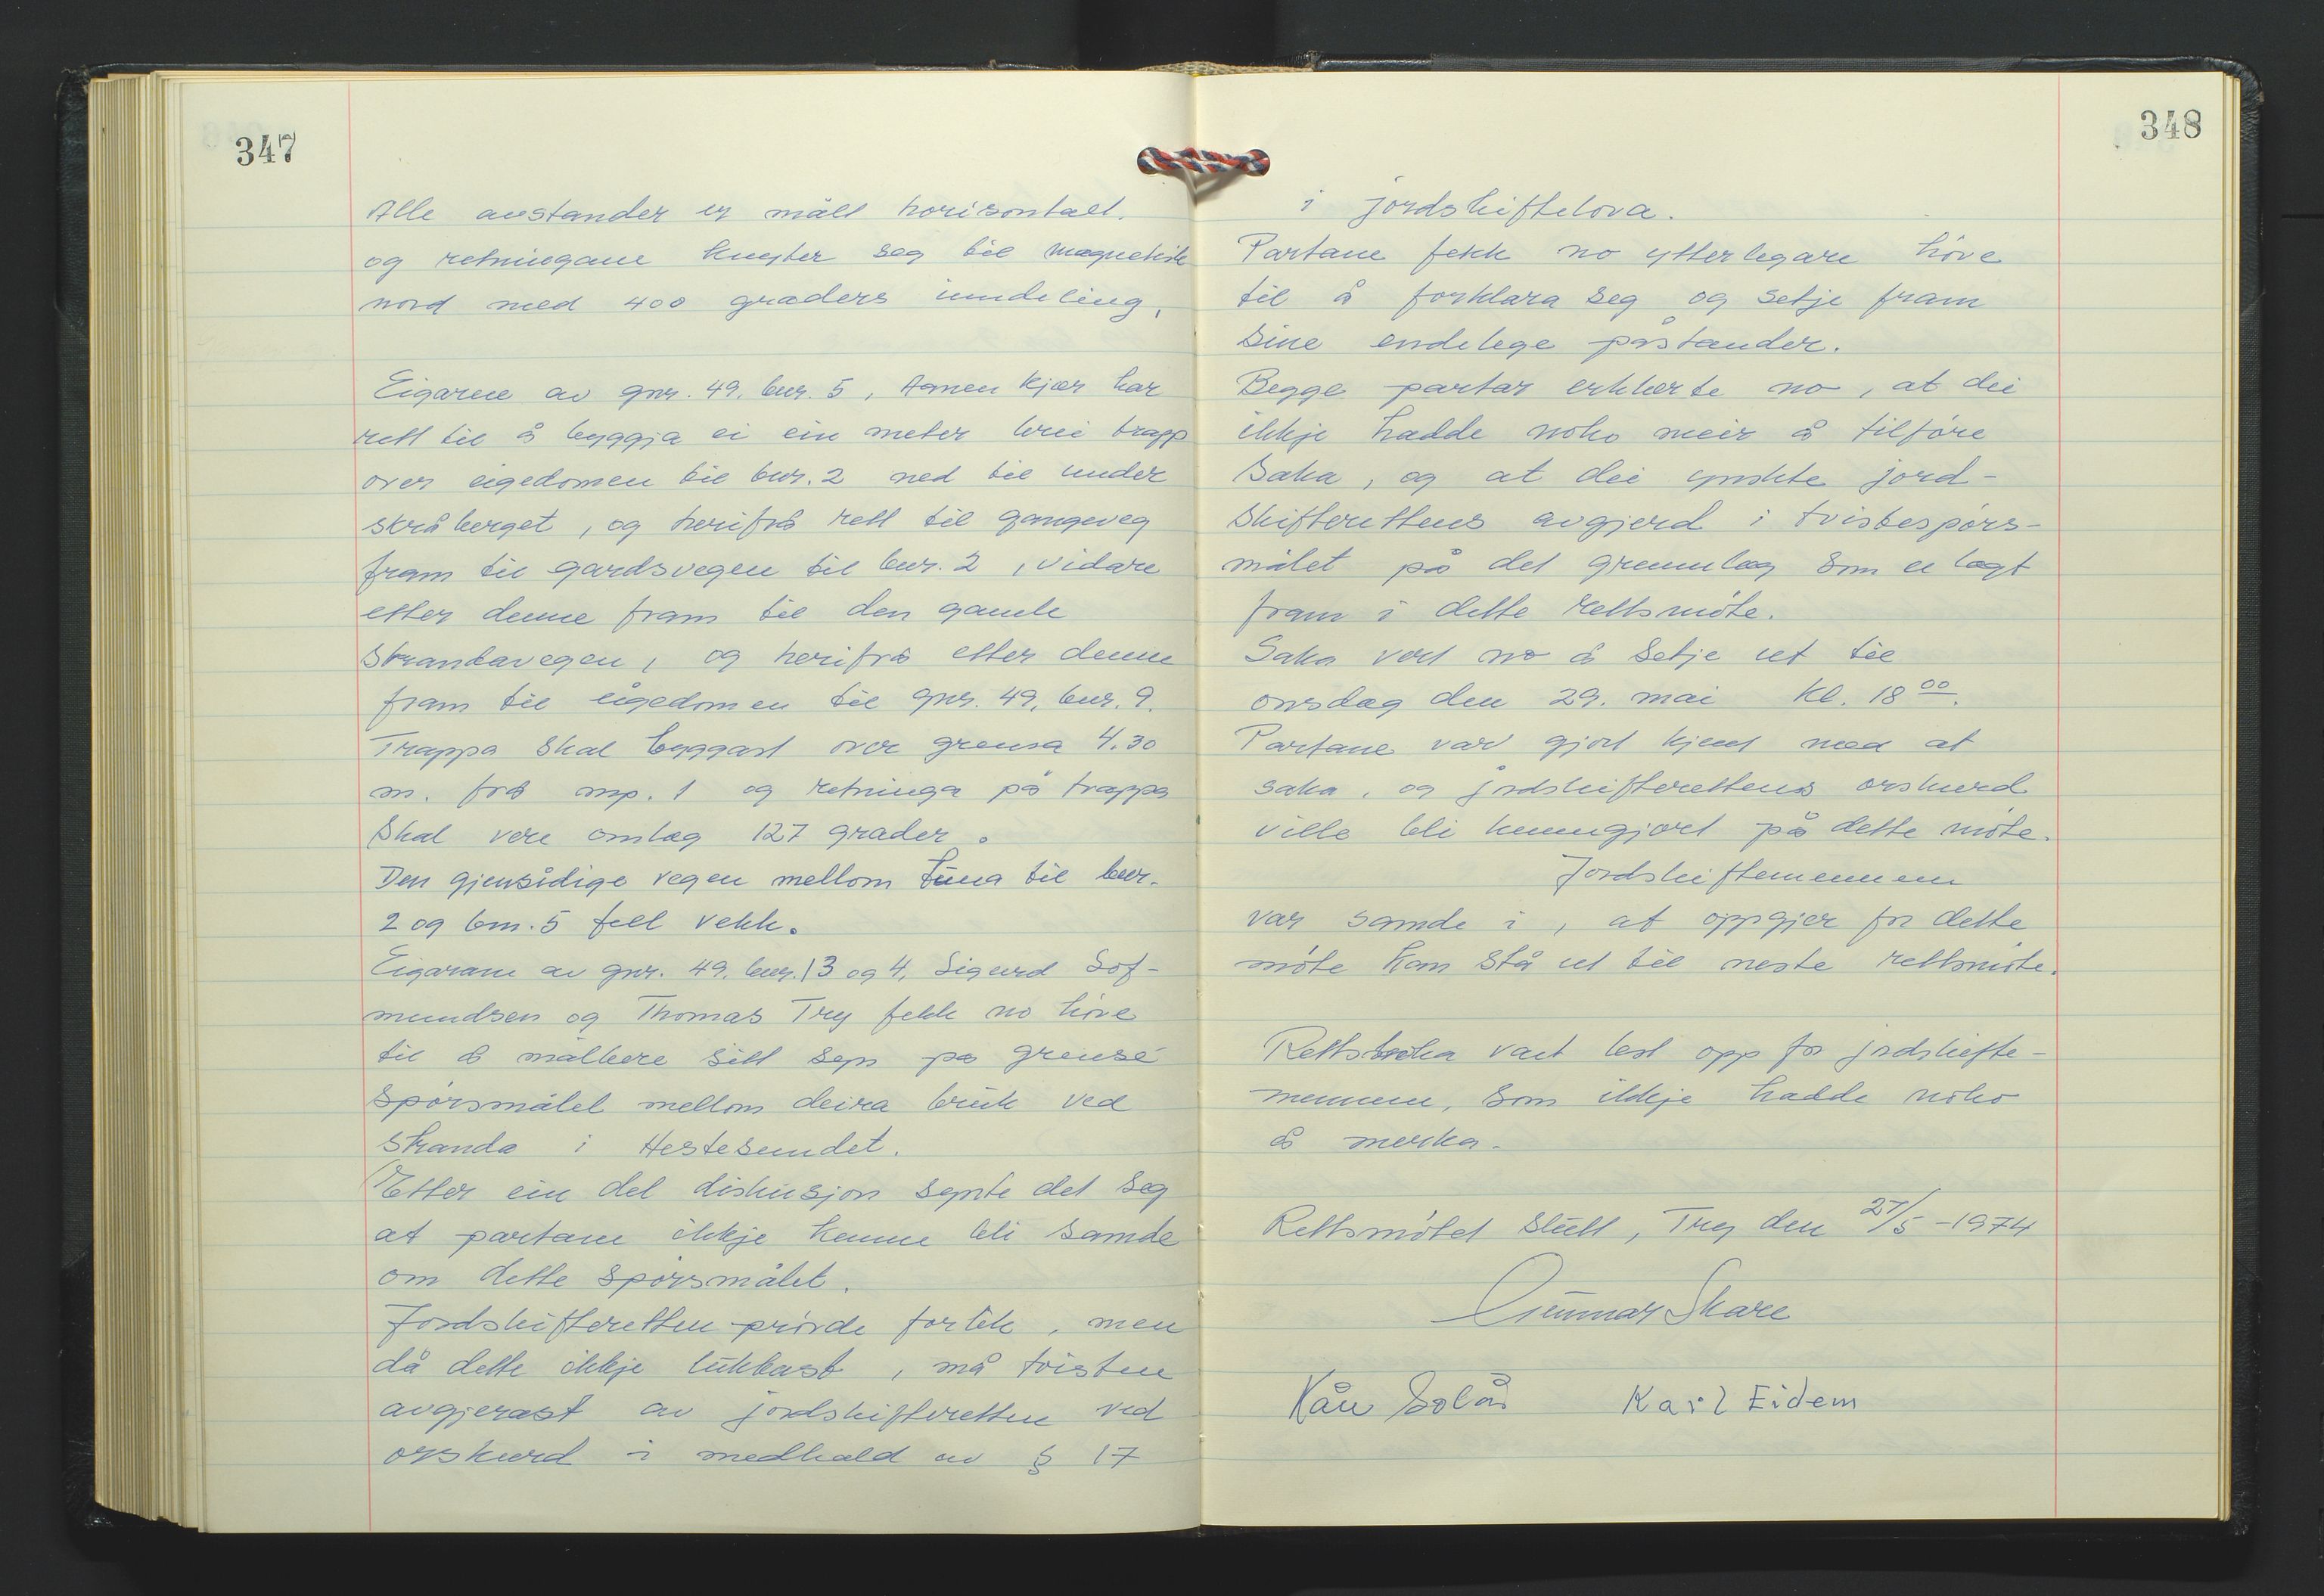 347
Alle avstander er målt horisontalt.
og retningane knyter seg til magnetisk
nord med 400 graders inndeling.
Eigaren av gnr. 49. bnr. 5, Agnen Kjær har
rett til å byggja ei ein meter brei trapp
over eigedomen til bnr. 2 ned til under
skråberget, og herifrå rett til gangeveg
fram til gardsvegen til bnr. 2, vidare
etter denne fram til den gamle
Strandavegen, og herifrå etter denne
fram til eigedomen til gnr. 49, bnr. 9.
Trappa skal byggast over grensa 4.30
m. frå mp. 1 og retninga på trappa
skal vere omlag 127 grader.
Den gjensidige vegen mellom tuna til bnr.
2 og bnr. 5 fell vekk.
Eigarane av gnr. 49. bnr. 13 og 4, Sigurd Sof-
mundsen og Thomas Try fekk no høve
til å målbere sitt syn på grense
spørsmålet mellom deira bruk ved
stranda i Hestesundet.
Etter ein del diskusjon synte det seg
at partane ikkje kunne bli samde
om dette spørsmålet.
Jordskifteretten prøvde forlik, men
då dette ikkje lukkast, må tvisten
avgjerast av jordskifteretten ved
orskurd i medhald av § 17
348
i jordskiftelova.
Partane fekk no ytterlegare høve
til å forklara seg og setje fram
sine endelege påstander.
Begge partar erklærte no, at dei
ikkje hadde noko meir å tilføre
saka, og at dei ynskte jord-
skifterettens avgjerd i tvistespørs-
målet på det grunnlag som er lagt
fram i dette rettsmøte.
Saka vert no å setje ut til
onsdag den 29. mai kl. 18 00.
Partane var gjort kjent med at
saka, og jordskifterettens orskurd
ville bli kunngjort på dette møte.
Jordskiftemennene
var samde i, at oppgjer for dette
møte kan stå ut til neste rettsmøte.
Rettsboka vart lest opp for jordskifte-
mennene, som ikkje hadde noko
å merka.
Rettsmøtet slutt, Try den 27/5 -1974
Gunnar Skare
Kåre Solås Karl Eidem